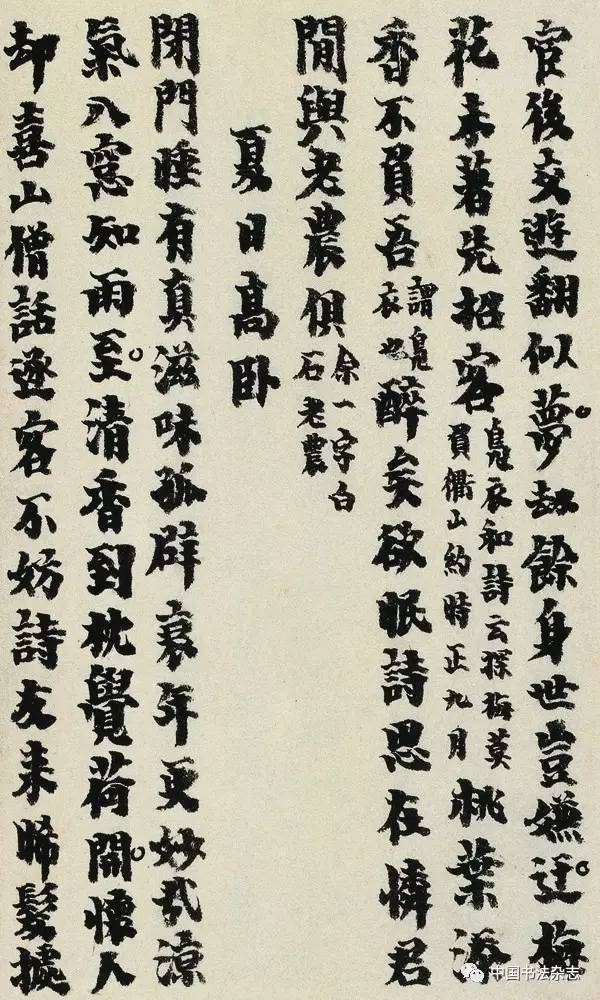 官後交遊翻似夢劫餘身世豈嫌迂梅
花未著先招客鳧衣和詩云探梅莫負衢山約時正九月桃葉添
香不負吾謂鳧衣也醉矣欲眠詩思在憐君
閒與老農俱余一字白石老農
夏日高卧
閉門睡有真滋味孤辟衰年更妙哉涼
氣入窓知雨至清香到枕覺荷開懷人
却喜山僧話逐客不妨詩友来晞髮據
中国书法杂志